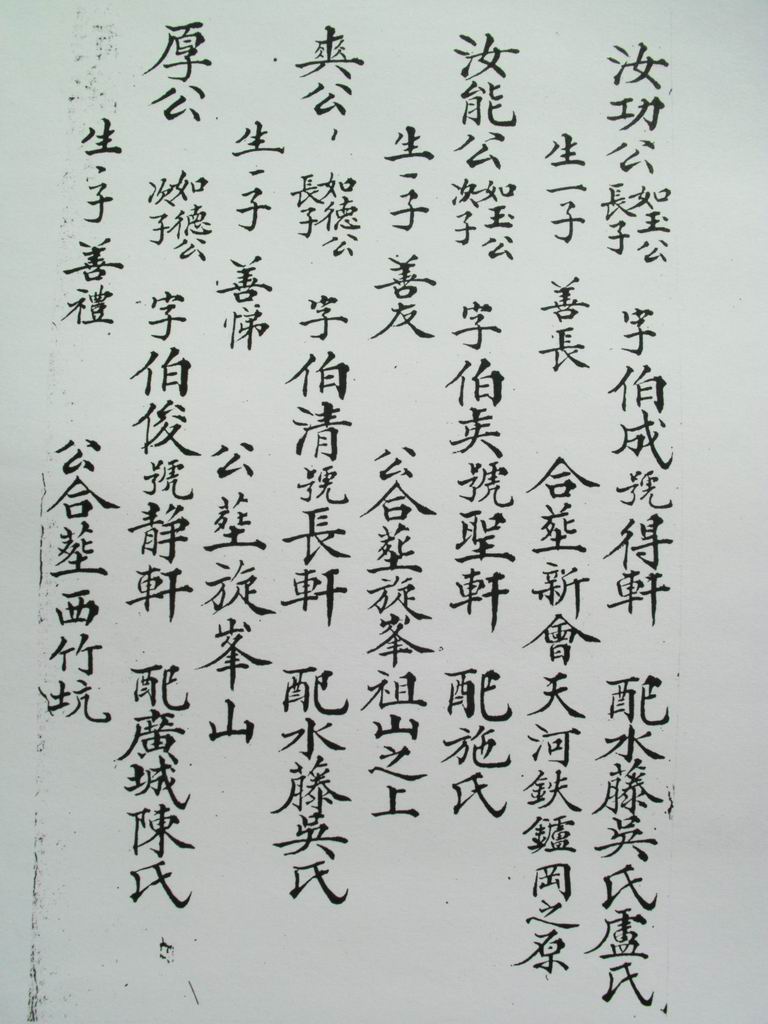 汝功公 如玉公長子 字伯成號得軒 配水藤吳氏盧氏
生一子 善長 合塟新會天河鉄鑪岡之原
汝能公 如玉公次子 字伯英號聖軒 配施氏
生一子 善友 公合塟旋峯祖山之上
爽公 如德公長子 字伯清號長軒 配水藤吳氏
生一子 善悌 公塟旋峯山
厚公 如德公次子 字伯俊號静軒 配廣城陳氏
生一子 善禮 公合塟西竹坑